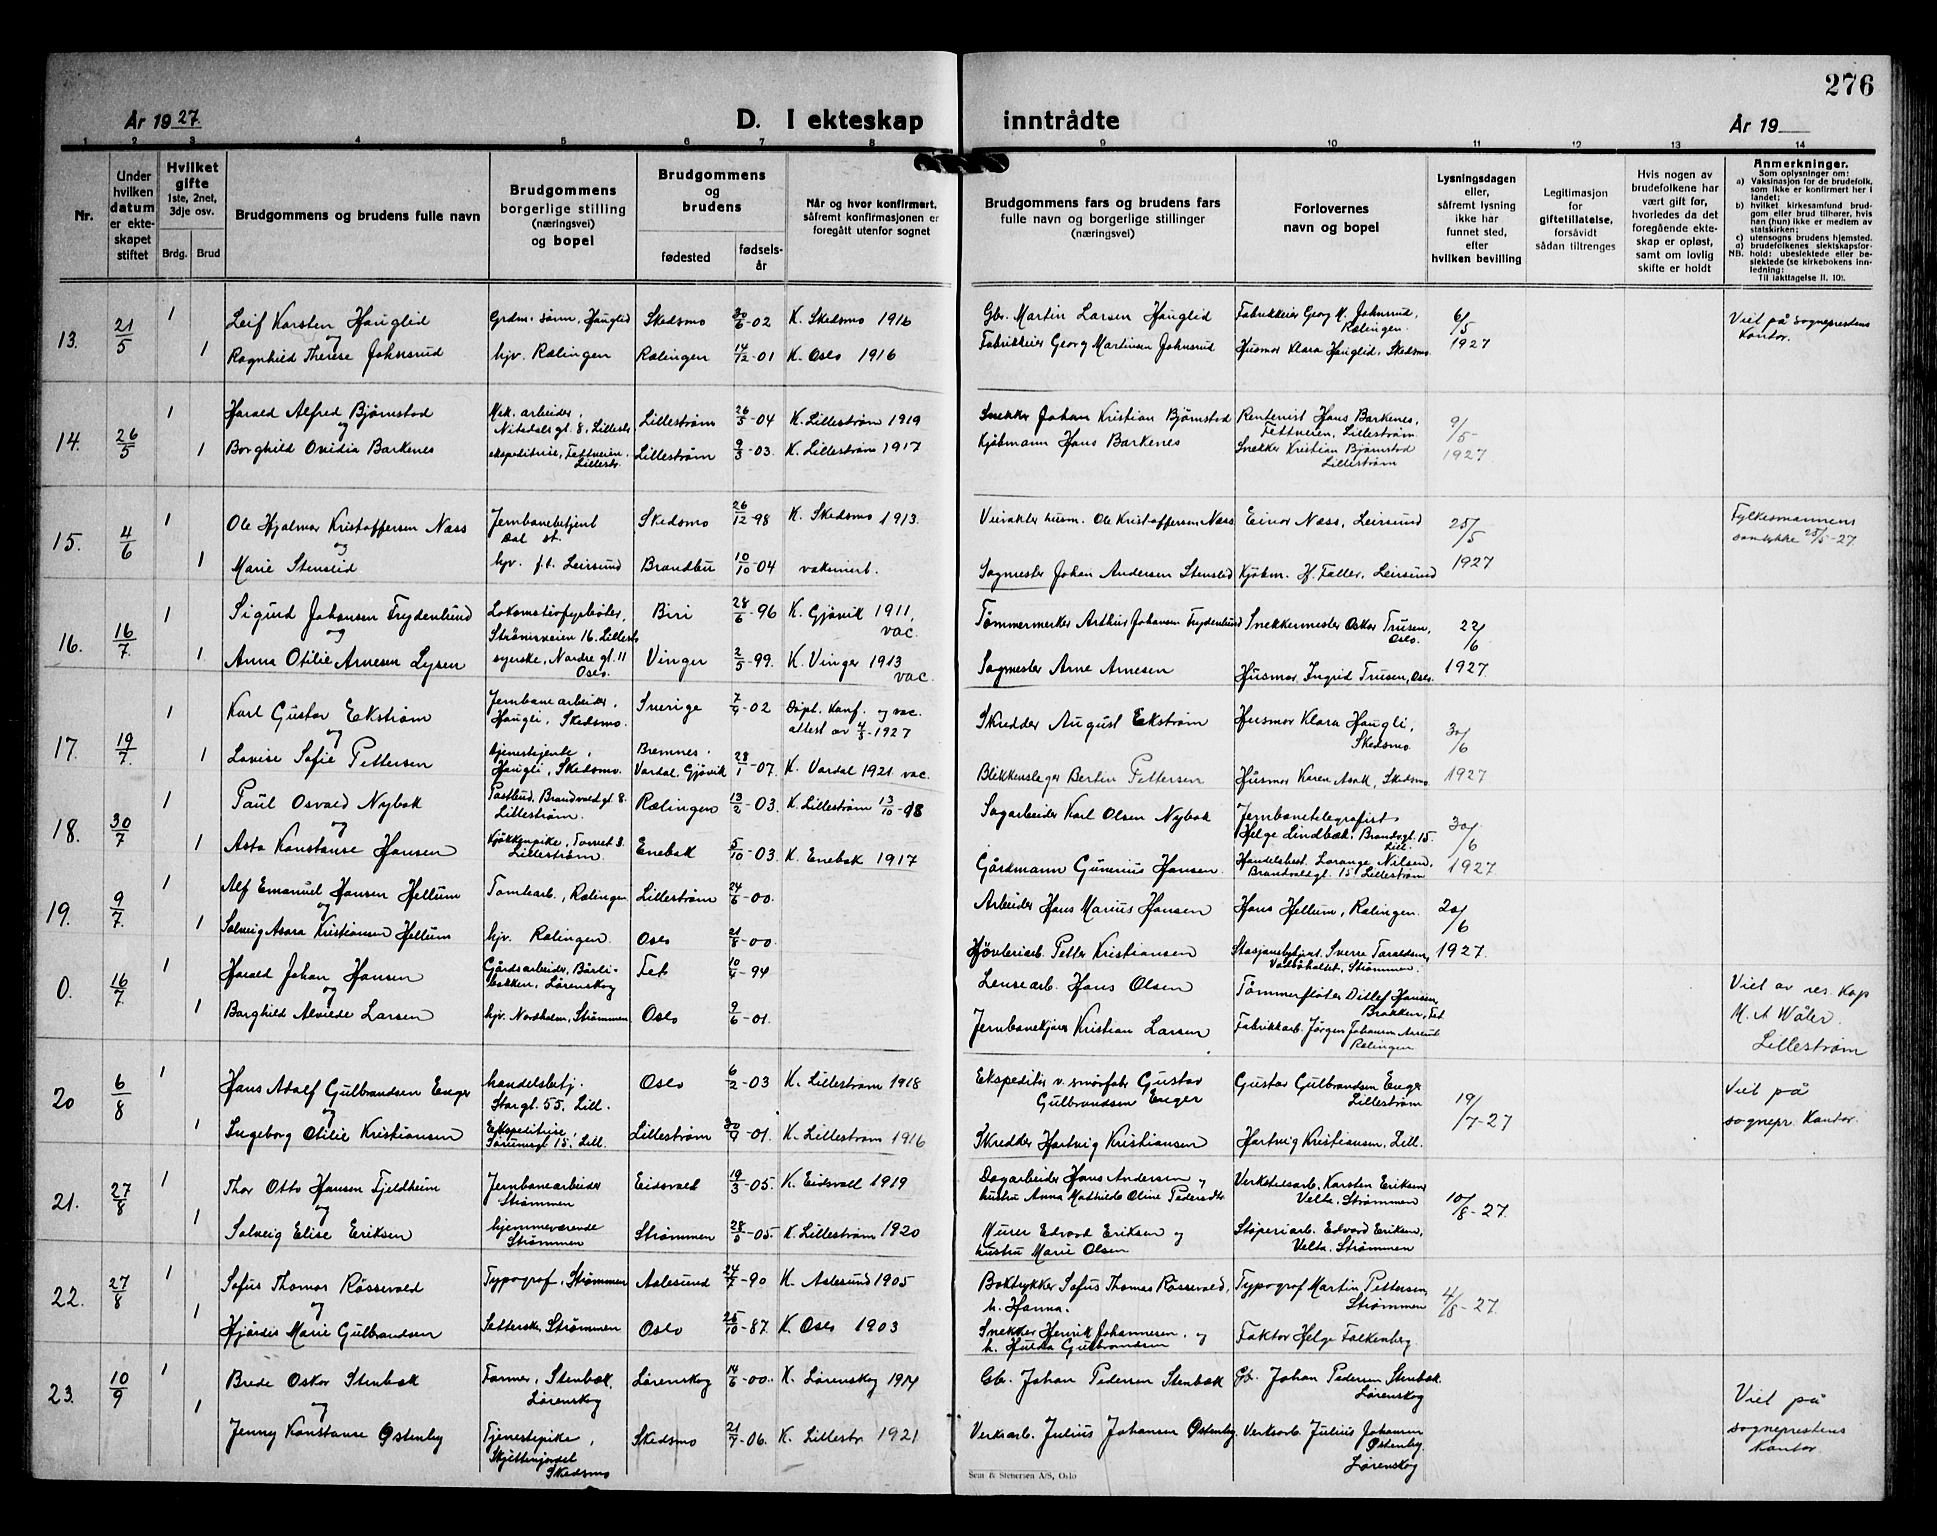 276
År 1927.
D. I ekteskap inntrådte
År 19
1 2 3 4 5 6 7 8 9 10 11 12 13 14
Nr.
Under hvilken datum er ekteskapet stiftet
Hvilket gifte 1ste, 2net, 3dje osv.
Brdg. Brud
Brudgommens og brudens fulle navn
Brudgommens borgerlige stilling (næringsvei) og bopel
Brudgommens og brudens
fødested
fødselsår
Når og hvor konfirmert, såfremt konfirmasjonen er foregått utenfor sognet
Brudgommens fars og brudens fars fulle navn og borgerlige stillinger (næringsvei)
Forlovernes navn og bopel
Lysningsdagen eller, såfremt lysning ikke har funnet sted, efter hvilken bevilling
Legitimasjon for giftetillatelse, forsåvidt sådan tiltrenges
Hvis nogen av brudefolkene har vært gift før, hvorledes da det foregående ekteskap er opløst, samt om lovlig skifte er holdt
Anmerkninger.
Som oplysninger om:
a) Vaksinasjon for de brudefolk, som ikke er konfirmert her i landet;
b) hvilket kirkesamfund brudgom eller brud tilhører, hvis han (hun) ikke er medlem av statskirken;
c) utensogns brudens hjemsted.
d) brudefolkenes slektskapsforhold: ubeslektede eller beslektede (se kirkebokens innledning:
NB. Til iakttagelse II. 10).
13. 21/5 1 Leif Karsten Hauglid og Grdm. sønn, Hauglid Skedsmo 30/6-02 K. Skedsmo 1916 Gbr. Martin Larsen Hauglid Fabrikkeier Georg M. Johnsrud, Rælingen. 6/5 1927 Viet på sogneprestens Kontor.
1 Ragnhild Therese Johnsrud hjv. Rælingen Rælingen 14/12-01 K. Oslo 1916 Fabrikkeier Georg Martinsen Johnsrud Husmor Klara Hauglid, Skedsmo.
14. 26/5 1 Harald Alfred Bjørnstad og Mek. arbeider, Nitedalsgt. 8, Lillestr. Lillestrøm 26/5-04 K. Lillestrøm 1919 Snekker Johan Kristian Bjørnstad Rentenist Hans Barkenes, Fettveien, Lillestrøm. 9/5- 1927
1 Borghild Ovidia Barkenes ekspeditrise, Fettveien, Lillestr. Lillestrøm 9/3-03. K. Lillestrøm 1917 Kjøbmann Hans Barkenes Snekker Kristian Bjørnstad Lillestrøm
15. 4/6 1 Ole Hjalmar Kristoffersen Næss og Jernbanebetjent Dal st. Skedsmo 26/12-98 K. Skedsmo 1913. Ole Kristoffersen Næss Einar Næss, Leirsund 25/5 1927 Fylkesmannens samtykke 25/5-27.
1 Marie Stenslid hjv. f.t. Leirsund Brandbu 10/10-04 vaksinert. Sagmester Johan Andersen Stenslid Kjøbm. H. Faller, Leirsund
16. 16/7. 1 Sigurd Johansen Frydenlund og Lokomotivfyrbøter, Strømsveien 16. Lillestr. Biri 28/6-96 K. Gjøvik 1911, vac. Tømmermerker Arthur Johansen Frydenlund Snekkermester Oskar Trusen, Oslo. 22/6 1927
1 Anna Otilie Arnesen Lysen syerske, Nordre gt. 11 Oslo. Vinger 2/5-99. K. Vinger 1913 vac. Sagmester Arne Arnesen Husmor Ingrid Trusen, Oslo.
17. 19/7. 1 Karl Gustav Eckstrøm og Jernbanearbeider, Haugli, Skedsmo. Sverige 7/9-02 Døpt. Konf. og vac. attest av 4/3-1927 Skredder August Eckstrøm Husmor Klara Haugli, Skedsmo. 30/6 1927
1 Lovise Sofie Pettersen tjenestejente, Haugli, Skedsmo. Bremnes. Vardal, Gjøvik 28/1-07. K. Vardal 1921 vac. Blikkenslager Bertin Pettersen Husmor Karen Asak, Skedsmo
18. 30/7 1 Paul Osvald Nybak og Postbud, Brandvaldgt. 8. Lillestrøm. Rælingen 13/2-03. K. Lillestrøm 13/10-18 Sagarbeider Karl Olsen Nybak Jernbanetelegrafist Helge Lindbæk, Brandvgt. 15. Lill. 30/6 1927
1 Asta Konstanse Hansen Kjøkkenpike, Torvet 3. Lillestrøm. Enebak 5/10-03. K. Enebak 1917 Gårdmann Gunerius Hansen Handelsbest. Lorange Nilsen, Brandvaldgt. 15 Lillestrøm
19. 9/7. 1 Alf Emanuel Hansen Hellum og Tomtearb., Rælingen Lillestrøm 24/6-00. Arbeider Hans Marius Hansen Hans Hellum, Rælingen. 20/6 1927.
1 Solveig Asora Kristiansen Hellum hjv. Rælingen. Oslo 21/8-00. Høvleriarb. Petter Kristiansen Stasjonsbetjent Sverre Taraldsen, Strømmen.
0. 16/7 1 Harald Johan Hansen og Gårdsarbeider, Bårlibakken, Lørenskog Fet 10/4-94 Lensearb. Hans Olsen Tømmerfløter Ditlef Hansen, Brakken, Fet Viet av res. Kap M. A Wåler. Lillestrøm
1 Borghild Alvilde Larsen hjv. Nordholm, Strømmen. Oslo 9/6-01. Jernbanekjører Kristian Larsen Fabrikkarb. Jørgen Johansen Rælingen
20 6/8 1 Hans Adolf Gulbrandsen Enger og handelsbetj. Storgt. 55. Lill. Oslo 6/2-03 K. Lillestrøm 1918 Ekspeditør v. smørfabr Gustav Gulbrandsen Enger Gustav Gulbrandsen Enger Lillestrøm 19/7-27 Viet på sognepr. Kontor.
1 Ingeborg Otilie Kristiansen Ekspeditrise, Sørumsgt. 15. Lill. Lillestrøm 30/9-01. K. Lillestrøm 1916 Skredder Hartvig Kristiansen Hartvig Kristiansen, Lill.
21. 27/8 1 Thor Otto Hansen Fjeldheim og Jernbanearbeider Strømmen Eidsvold 19/3-05. K. Eidsvoll 1919 Dagarbeider Hans Andersen og hustru Anna Mathilde Oline Pedersdtr. Verkstedsarb. Karsten Eriksen, Velta, Strømmen 10/8-27.
1 Solveig Elise Eriksen hjemmeværende Strømmen Strømmen 28/5-05. K. Lillestrøm 1920 Murer Edvard Eriksen og hustru Marie Olsen Støperiarb. Edvard Eriksen, Velta, Strømmen
22. 27/8 1 Sofus Thomas Røssevold og Typograf, Strømmen Aalesund 24/7-90 K. Aalesund 1905 Boktrykker Sofus Thomas Røssevold, h. Hanna. Typograf Martin Pettersen, Strømmen 4/8-27.
1 Hjørdis Marie Gulbrandsen Setterske, Strømmen Oslo 25/10-87. K. Oslo 1903 Snekker Henrik Johannesen, og h. Hulda Gulbrandsen Faktor Helge Falkenberg.
23. 10/9 1 Brede Oskar Stenbæk og Farmer, Stenbæk, Lørenskog Lørenskog 14/6-00. K. Lørenskog 1914 Gbr. Johan Pedersen Stenbæk Gb. Johan Pedersen Stenbæk Lørenskog Viet på sogneprestens Kontor.
1 Jenny Konstanse Østenby Tjenestepike, Skjettenjordet Skedsmo Skedsmo 21/7-06. K. Lillestr. 1921 Verksarb. Julius Johansen Østenby. Verksarb. Julius Johansen Østenby Lørenskog
Sem & Stenersen A/S, Oslo